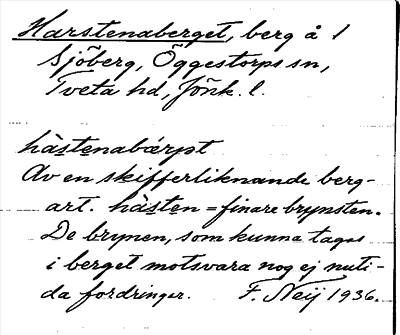 Harstenaberget, berg å 1
Sjöberg, Öggestorps sn,
Tveta hd, Jönk. l.
hàstenabǽrpt
Av en skifferliknande berg-
art. hàsten = finare brynsten.
De brynen, som kunna tagas
i berget motsvara nog ej nuti-
da fordringar. F. Neij 1936.